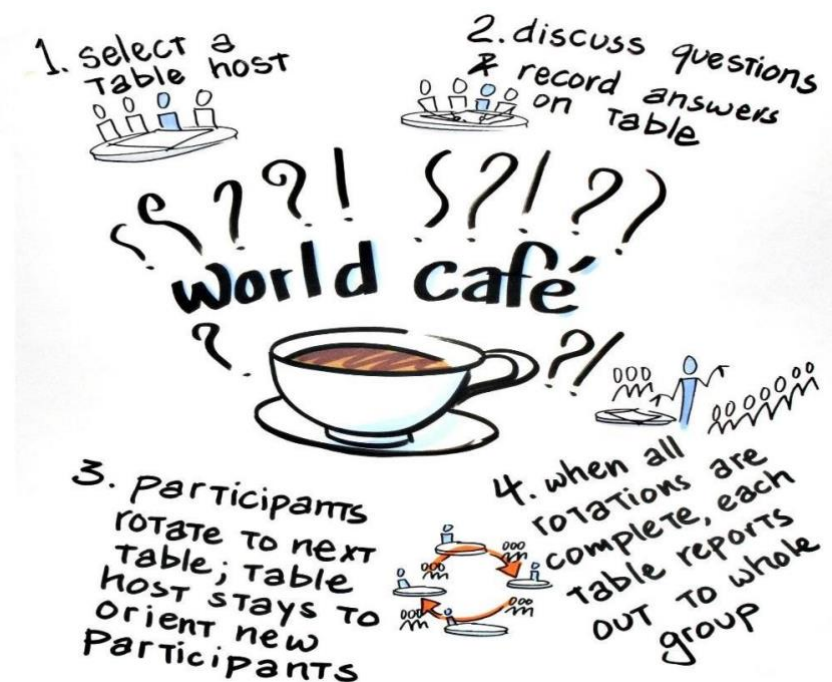 1. select a
table host
2. discuss questions
& record answers
on table
? ? ? ? ! ? ? ! ? ?
world café
? ? !
3. participants
rotate to next
table; table
host stays to
orient new
participants
4. when all
rotations are
complete, each
table reports
out to whole
group